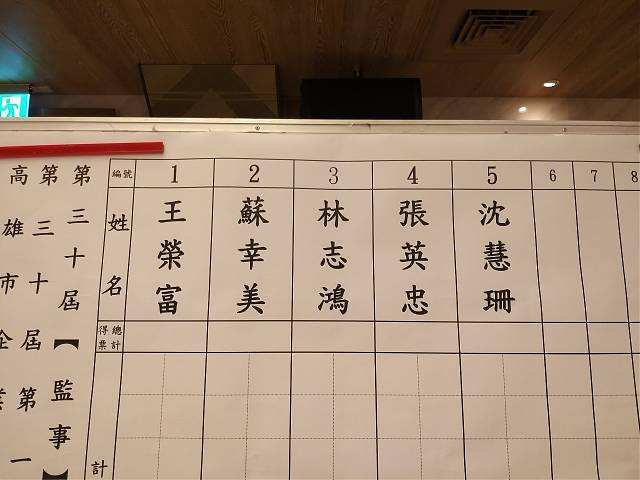 第三十屆【監事】
第三十屆第一
高雄市企業
編號 1 2 3 4 5 6 7 8
姓名 王榮富 蘇幸美 林志鴻 張英忠 沈慧珊
得票總計
計